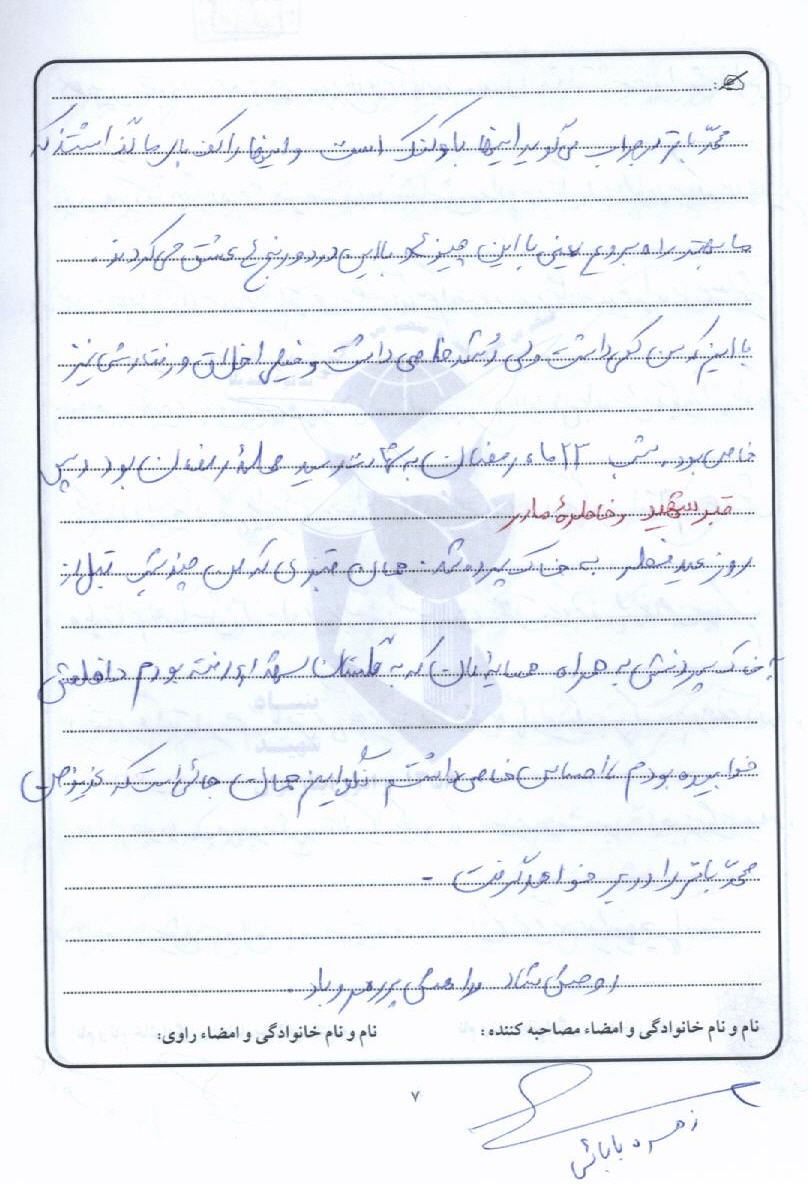 محمّد باقر در جواب می‌گوید اینها باد کنک است و اینها را کف پایم گذاشتند که
ما بهتر راه بروم یعنی با این چیزها با این درد و رنج‌ها عشق می‌کردند.
با اینکه سن کمی داشت ولی رُشد خاصی داشت و خیلی اخلاق و رفتارش نیز
خاص بود. شب ۲۳ ماه رمضان به شهادت رسید عملیهٔ رمضان بود و پس
قبر شهید و خاطرهٔ مادر
روز عید فطر به خاک سپرده شد. همان قبری که من چند شب قبل از
به خاک سپردنش به همراه همسایه‌مان که به گلستان شهدا رفته بودم داخلش
خوابیده بودم، احساس خاصی داشتم گوئی این همان جائی است که عزیز من
محمّد باقر را در بر خواهد گرفت -
روحش شاد و راهش پر رهرو باد.
نام و نام خانوادگی و امضاء مصاحبه کننده : نام و نام خانوادگی و امضاء راوی:
۷
زهره بابائی